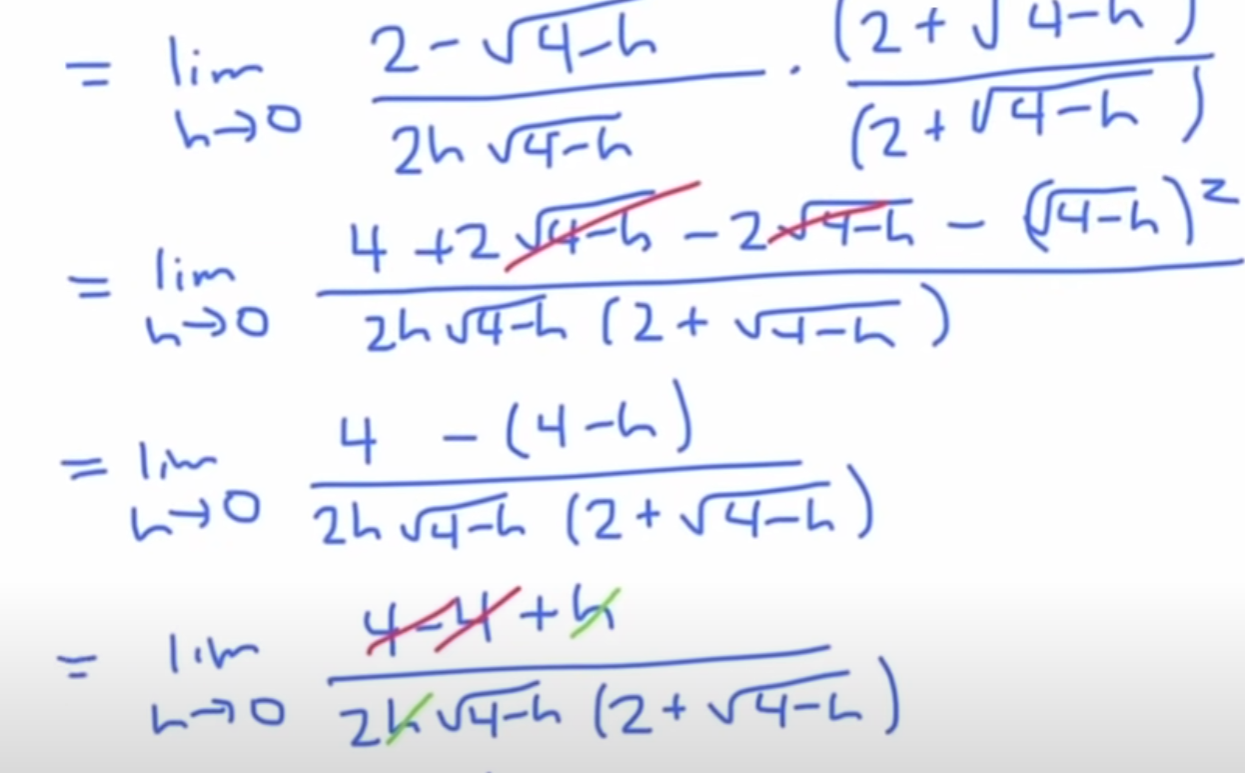 = lim h→0 (2 - √(4-h)) / (2h √(4-h)) · (2 + √(4-h)) / (2 + √(4-h))
= lim h→0 (4 + 2√(4-h) - 2√(4-h) - (√(4-h))²) / (2h √(4-h) (2 + √(4-h)))
= lim h→0 (4 - (4-h)) / (2h √(4-h) (2 + √(4-h)))
= lim h→0 (4 - 4 + h) / (2h √(4-h) (2 + √(4-h)))